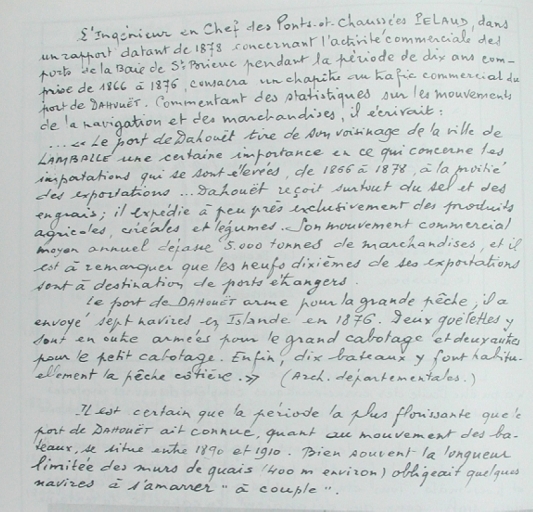 L'Ingénieur en Chef des Ponts-et-Chaussées PELAUD, dans
un rapport datant de 1878 concernant l'activité commerciale des
ports de la Baie de St-Brieuc pendant la période de dix ans com-
prise de 1866 à 1876, consacra un chapitre au trafic commercial du
port de DAHOUËT. Commentant des statistiques sur les mouvements
de la navigation et des marchandises, il écrivait :
... « Le port de Dahouët tire de son voisinage de la ville de
LAMBALLE une certaine importance en ce qui concerne les
importations qui se sont élevées, de 1866 à 1878, à la moitié
des exportations ... Dahouët reçoit surtout du sel et des
engrais ; il expédie à peu près exclusivement des produits
agricoles, céréales et légumes. Son mouvement commercial
moyen annuel dépasse 5.000 tonnes de marchandises, et il
est à remarquer que les neufs dixièmes de ses exportations
sont à destination de ports étrangers.
Le port de DAHOUËT arme pour la grande pêche ; il a
envoyé sept navires en Islande en 1876. Deux goëlettes y
sont en outre armées pour le grand cabotage et deux autres
pour le petit cabotage. Enfin, dix bateaux y font habitu-
ellement la pêche côtière. » (Arch. départementales.)
Il est certain que la période la plus florissante que le
port de DAHOUËT ait connue, quant au mouvement des ba-
teaux, se situe entre 1890 et 1910. Bien souvent la longueur
limitée des murs de quais (400 m environ) obligeait quelques
navires à s'amarrer " à couple ".